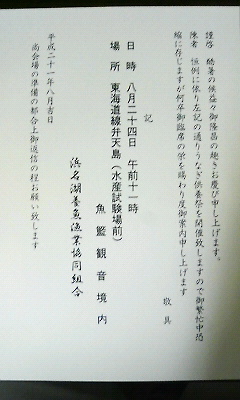 謹啓 酷暑の候益々御隆昌の趣きお慶び申し上げます。
陳者 恒例に依り左記の通りうなぎ供養祭を開催致しますので御繁忙中恐
縮に存じますが何卒御臨席の栄を賜わり度御案内申し上げます
敬具
記
日時 八月二十四日 午前十一時
場所 東海道線弁天島(水産試験場前)
魚籃観音境内
浜名湖養魚漁業協同組合
平成二十一年八月吉日
尚会場の準備の都合上御返信の程お願い致します